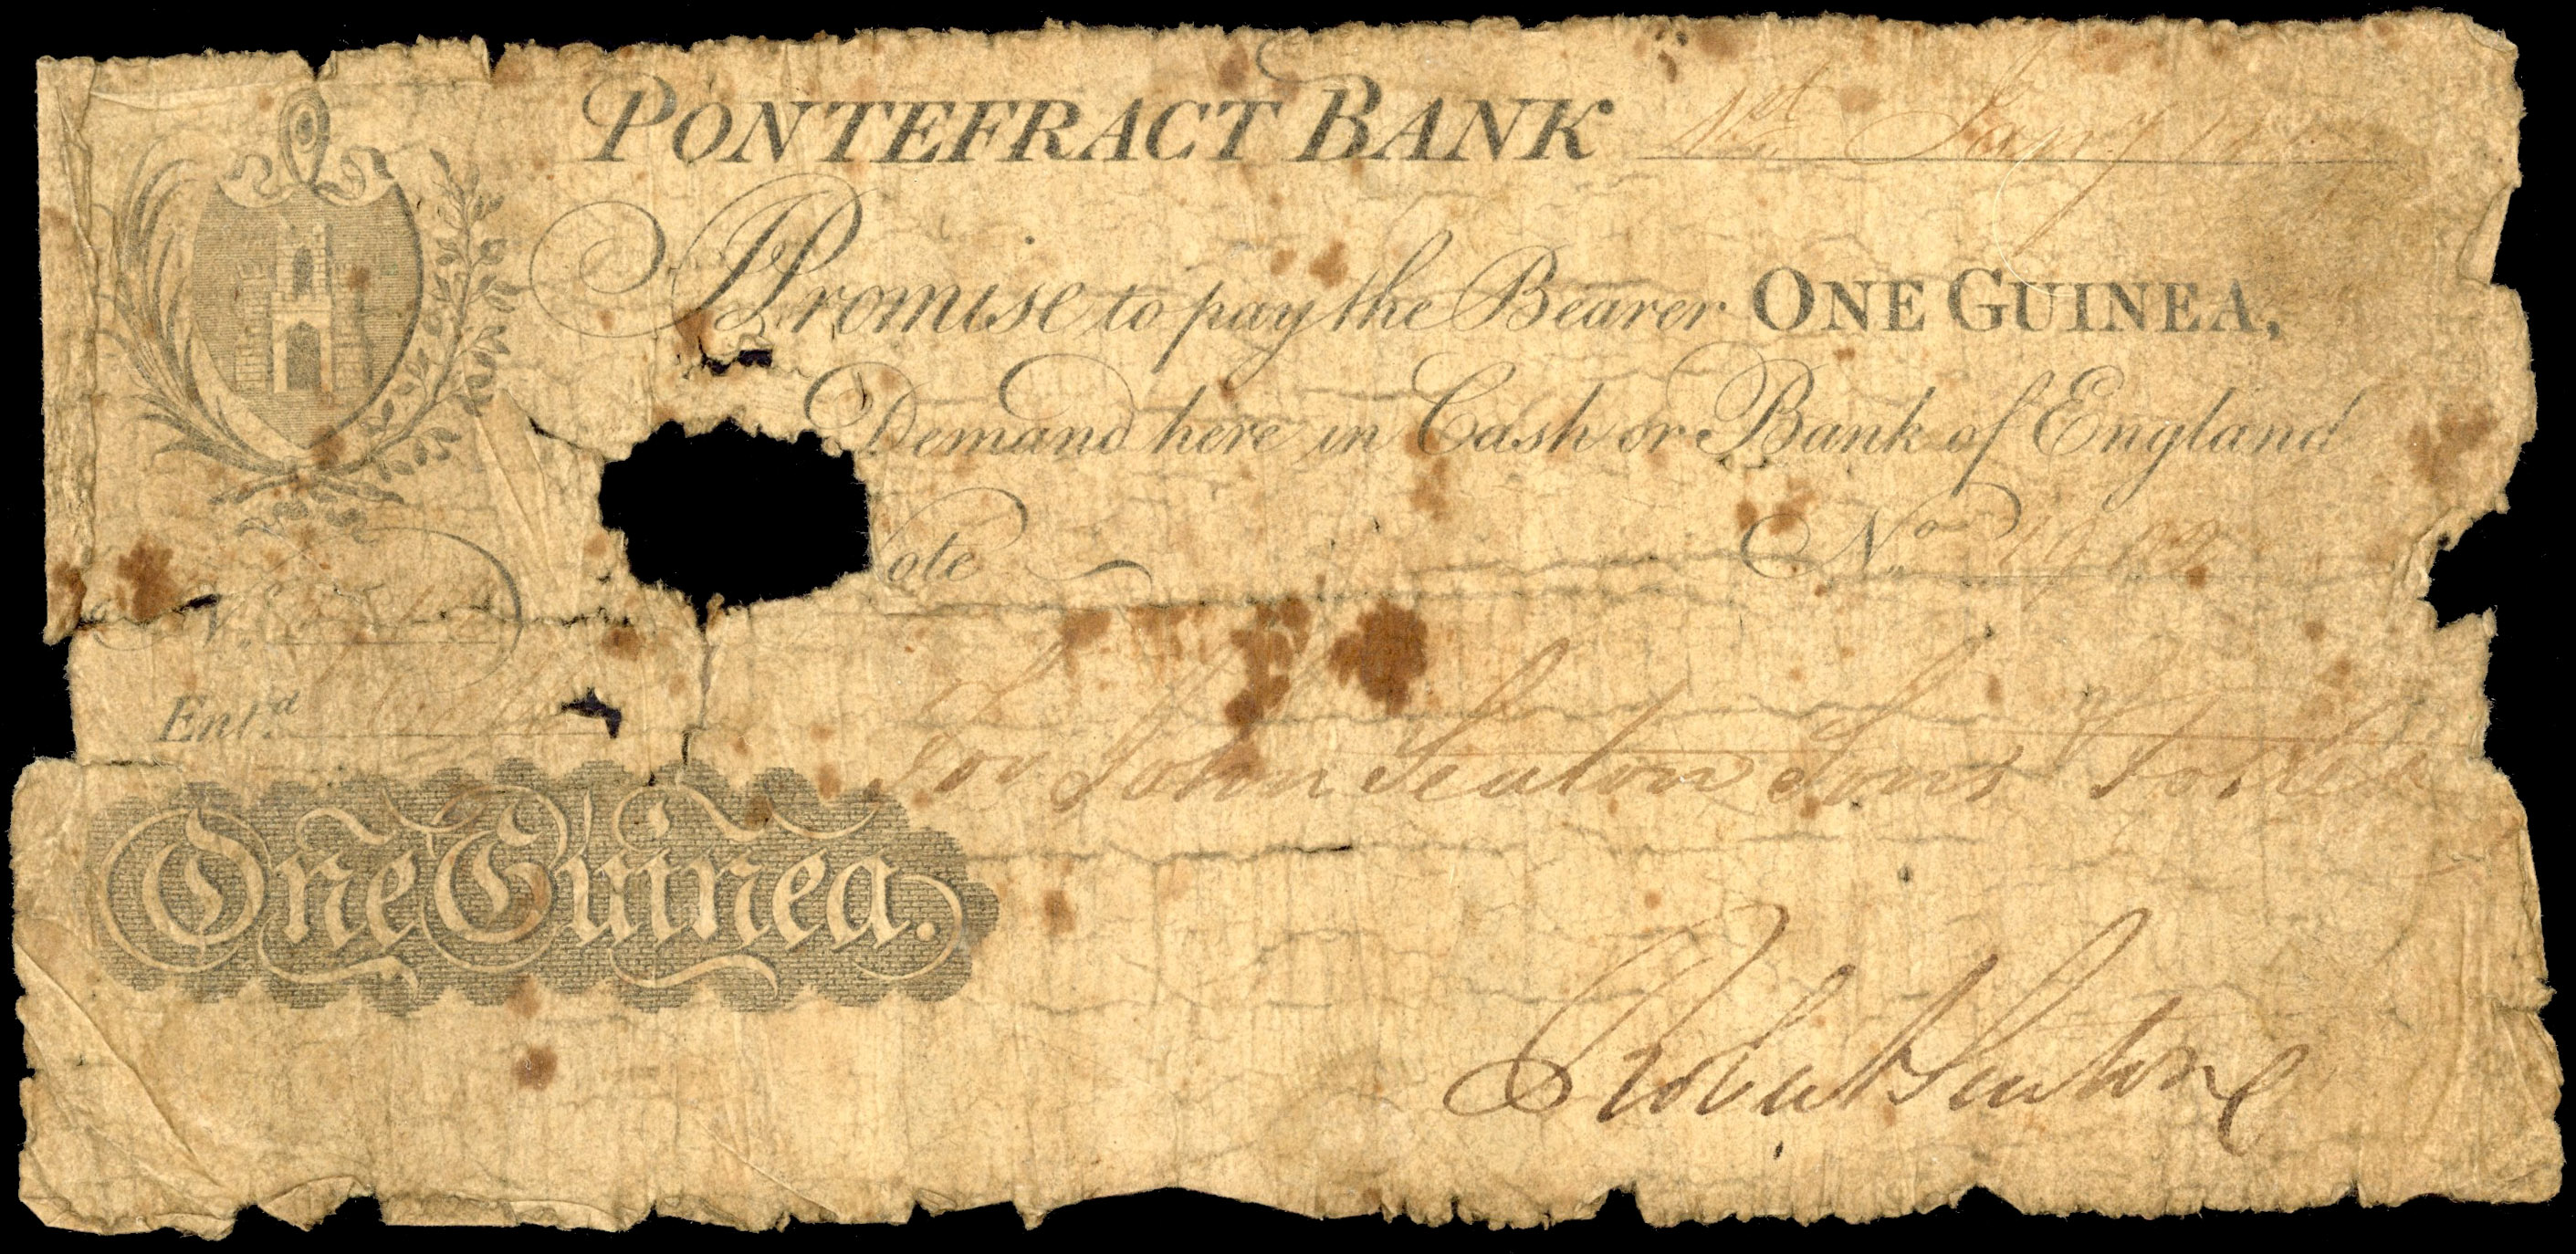 PONTEFRACT BANK 1st Jany
Promise to pay the Bearer ONE GUINEA,
Demand here in Cash or Bank of England
ote No
No
Entd
For John Seaton Sons
One Guinea.
Robt Seaton